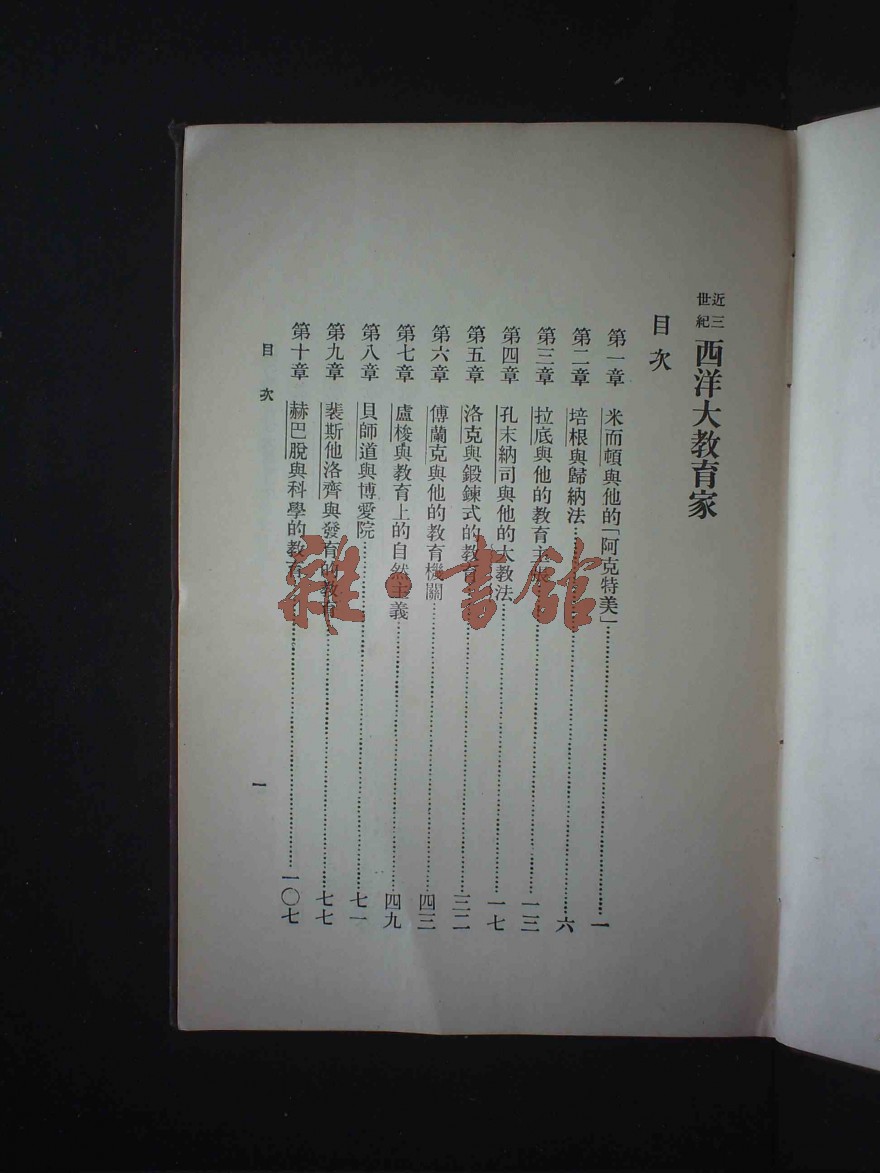 近三世紀西洋大教育家
目次
第一章 米而頓與他的「阿克特美」……一
第二章 培根與歸納法……六
第三章 拉底與他的教育主張……一三
第四章 孔末納司與他的大教法……一七
第五章 洛克與鍛鍊式的教育……三二
第六章 傅蘭克與他的教育機關……四三
第七章 盧梭與教育上的自然主義……四九
第八章 貝師道與博愛院……七一
第九章 裴斯他洛齊與發育的教育……七七
第十章 赫巴脫與科學的教育……一〇七
目次
一
雜·書館